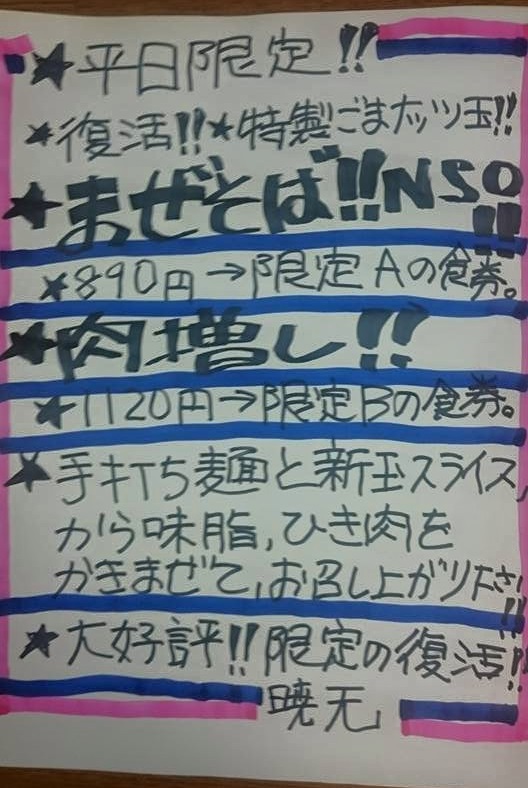 ★平日限定!!
★復活!!★特製ごまナッツ玉!!
★まぜそば!!NSO!!
★890円→限定Aの食券。
★肉増し!!
★1120円→限定Bの食券。
★手打ち麺と新玉スライス,
から味脂,ひき肉を
かきまぜて,お召し上がり下さい!!
★大好評!!限定の復活!!
暁无